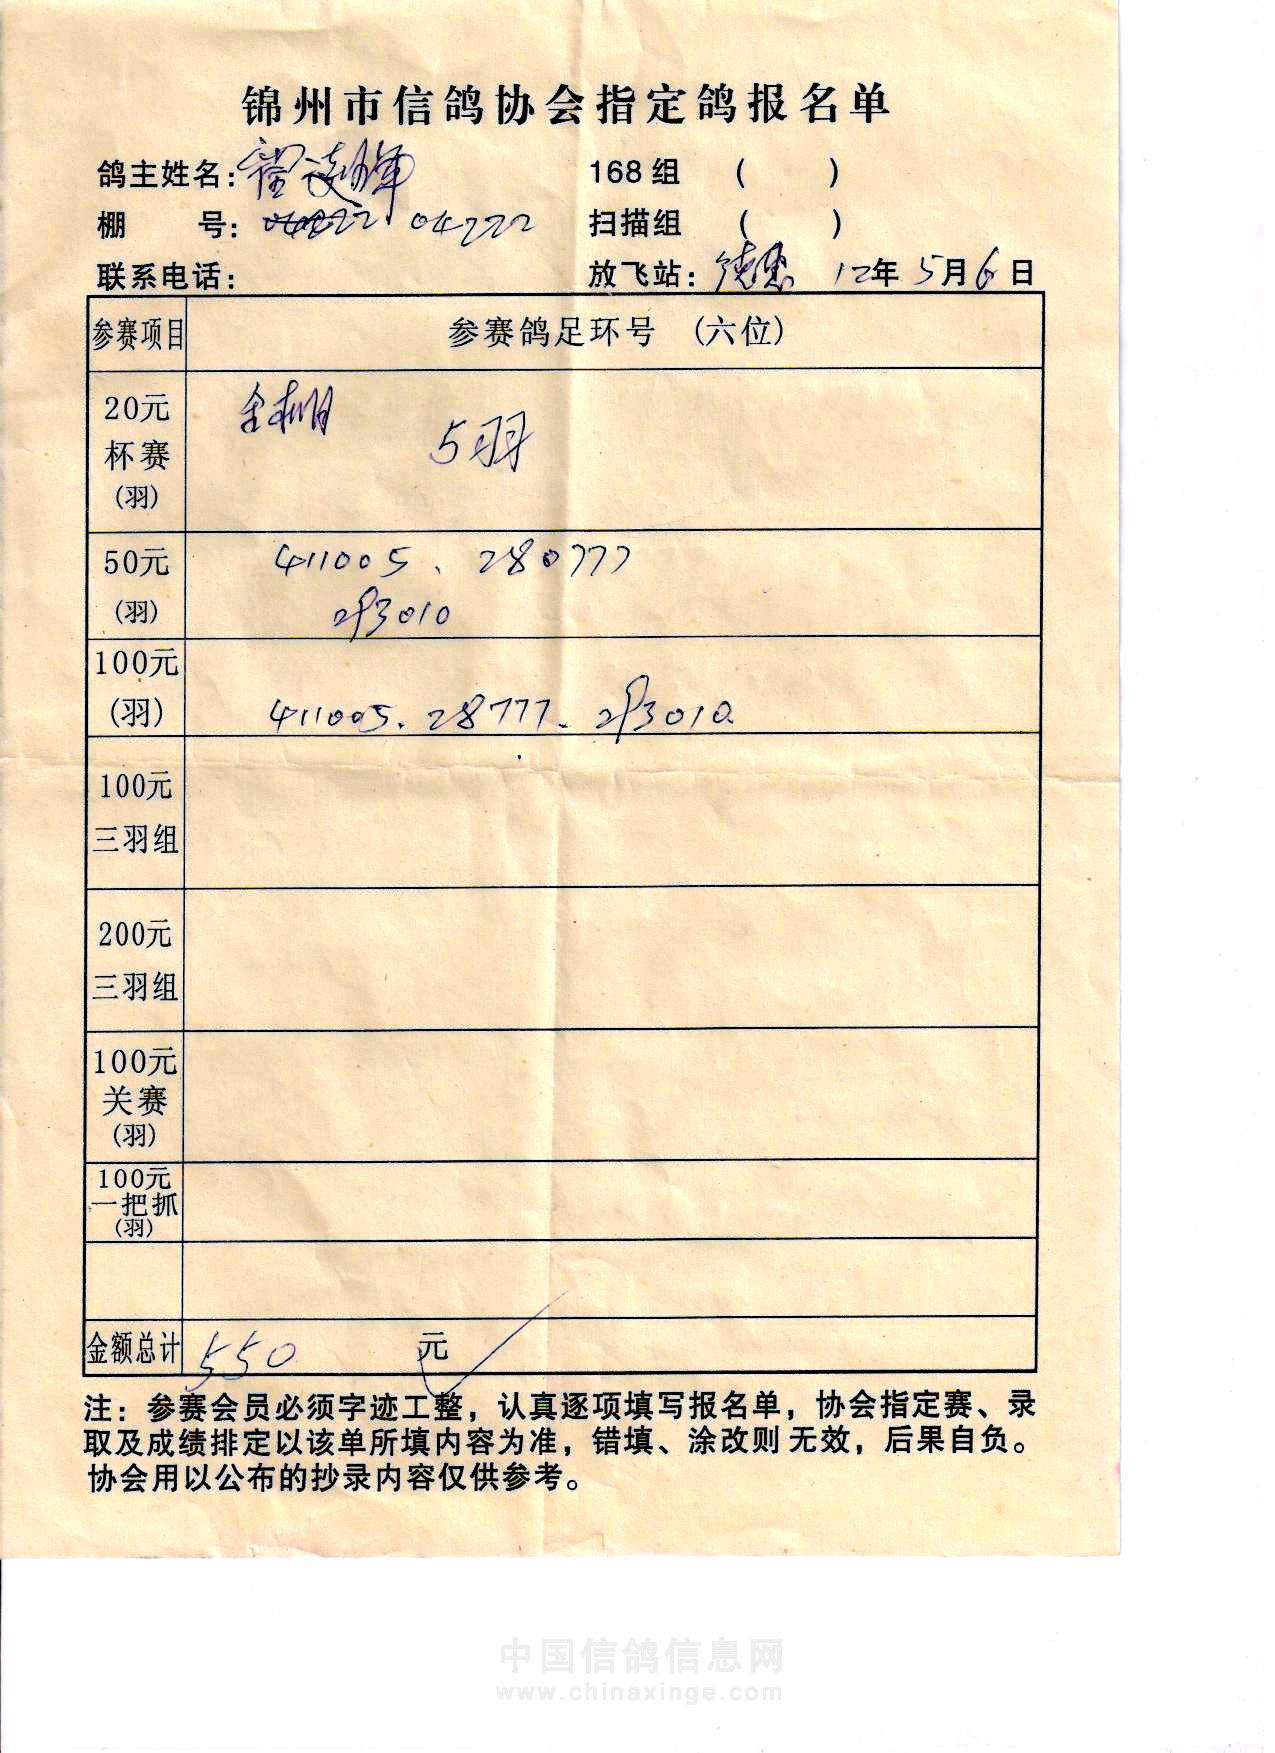 锦州市信鸽协会指定鸽报名单
鸽主姓名: 168组 ( )
棚 号: 04222 扫描组 ( )
联系电话: 放飞站: 德惠 12年5月6日
参赛项目 参赛鸽足环号 (六位)
20元 全棚
杯赛 5羽
(羽)
50元 411005、280777
(羽) 293010
100元
(羽) 411005. 28777. 293010
100元
三羽组
200元
三羽组
100元
关赛
(羽)
100元
一把抓
(羽)
金额总计 550 元
注: 参赛会员必须字迹工整, 认真逐项填写报名单, 协会指定赛、录
取及成绩排定以该单所填内容为准, 错填、涂改则 无效, 后果自负。
协会用以公布的抄录内容仅供参考。
中国信鸽信息网
www.chinaxinge.com